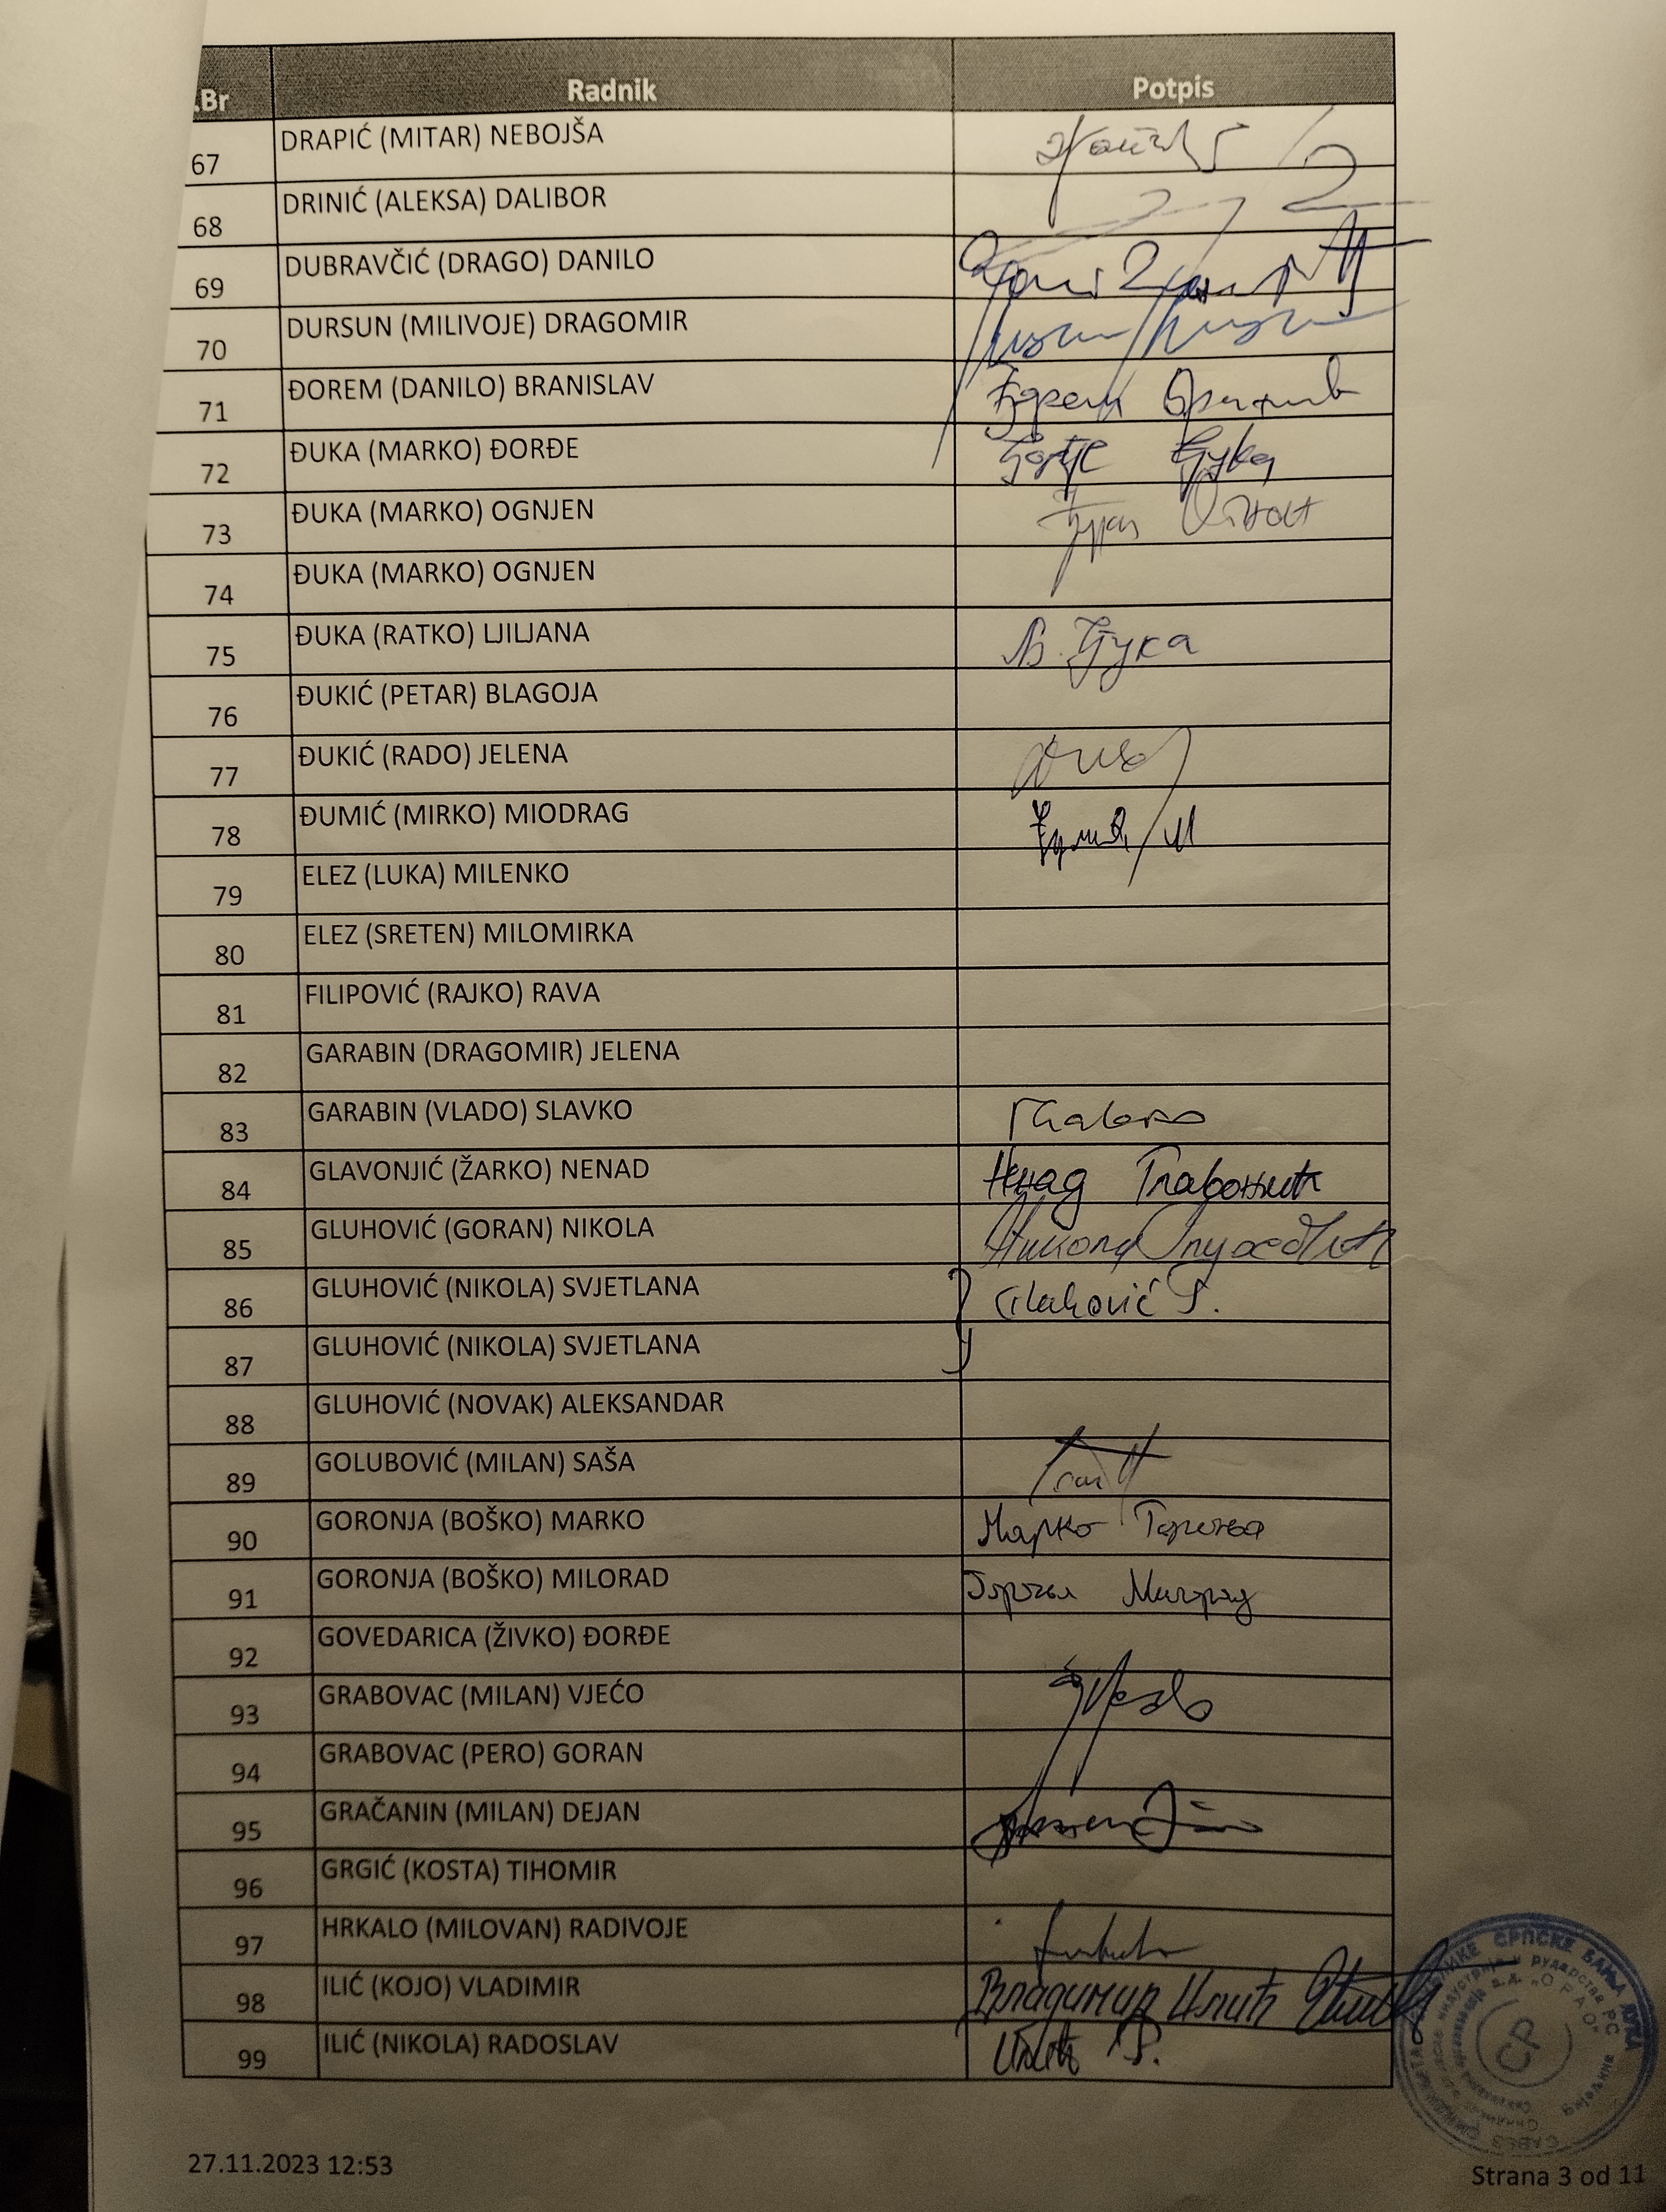 .Br Radnik Potpis
67 DRAPIĆ (MITAR) NEBOJŠA
68 DRINIĆ (ALEKSA) DALIBOR
69 DUBRAVČIĆ (DRAGO) DANILO
70 DURSUN (MILIVOJE) DRAGOMIR
71 ĐOREM (DANILO) BRANISLAV
72 ĐUKA (MARKO) ĐORĐE
73 ĐUKA (MARKO) OGNJEN
74 ĐUKA (MARKO) OGNJEN
75 ĐUKA (RATKO) LJILJANA Ђука
76 ĐUKIĆ (PETAR) BLAGOJA
77 ĐUKIĆ (RADO) JELENA
78 ĐUMIĆ (MIRKO) MIODRAG
79 ELEZ (LUKA) MILENKO
80 ELEZ (SRETEN) MILOMIRKA
81 FILIPOVIĆ (RAJKO) RAVA
82 GARABIN (DRAGOMIR) JELENA
83 GARABIN (VLADO) SLAVKO
84 GLAVONJIĆ (ŽARKO) NENAD Ненад Главоњић
85 GLUHOVIĆ (GORAN) NIKOLA Никола Глуховић
86 GLUHOVIĆ (NIKOLA) SVJETLANA Gluhović S.
87 GLUHOVIĆ (NIKOLA) SVJETLANA
88 GLUHOVIĆ (NOVAK) ALEKSANDAR
89 GOLUBOVIĆ (MILAN) SAŠA
90 GORONJA (BOŠKO) MARKO Марко Гороња
91 GORONJA (BOŠKO) MILORAD Гороња Милорад
92 GOVEDARICA (ŽIVKO) ĐORĐE
93 GRABOVAC (MILAN) VJEĆO
94 GRABOVAC (PERO) GORAN
95 GRAČANIN (MILAN) DEJAN
96 GRGIĆ (KOSTA) TIHOMIR
97 HRKALO (MILOVAN) RADIVOJE
98 ILIĆ (KOJO) VLADIMIR Владимир Илић
99 ILIĆ (NIKOLA) RADOSLAV Илић Р.
СРПСКЕ БАЊА ЛУКА
"ОРАО"
СР
27.11.2023 12:53
Strana 3 od 11